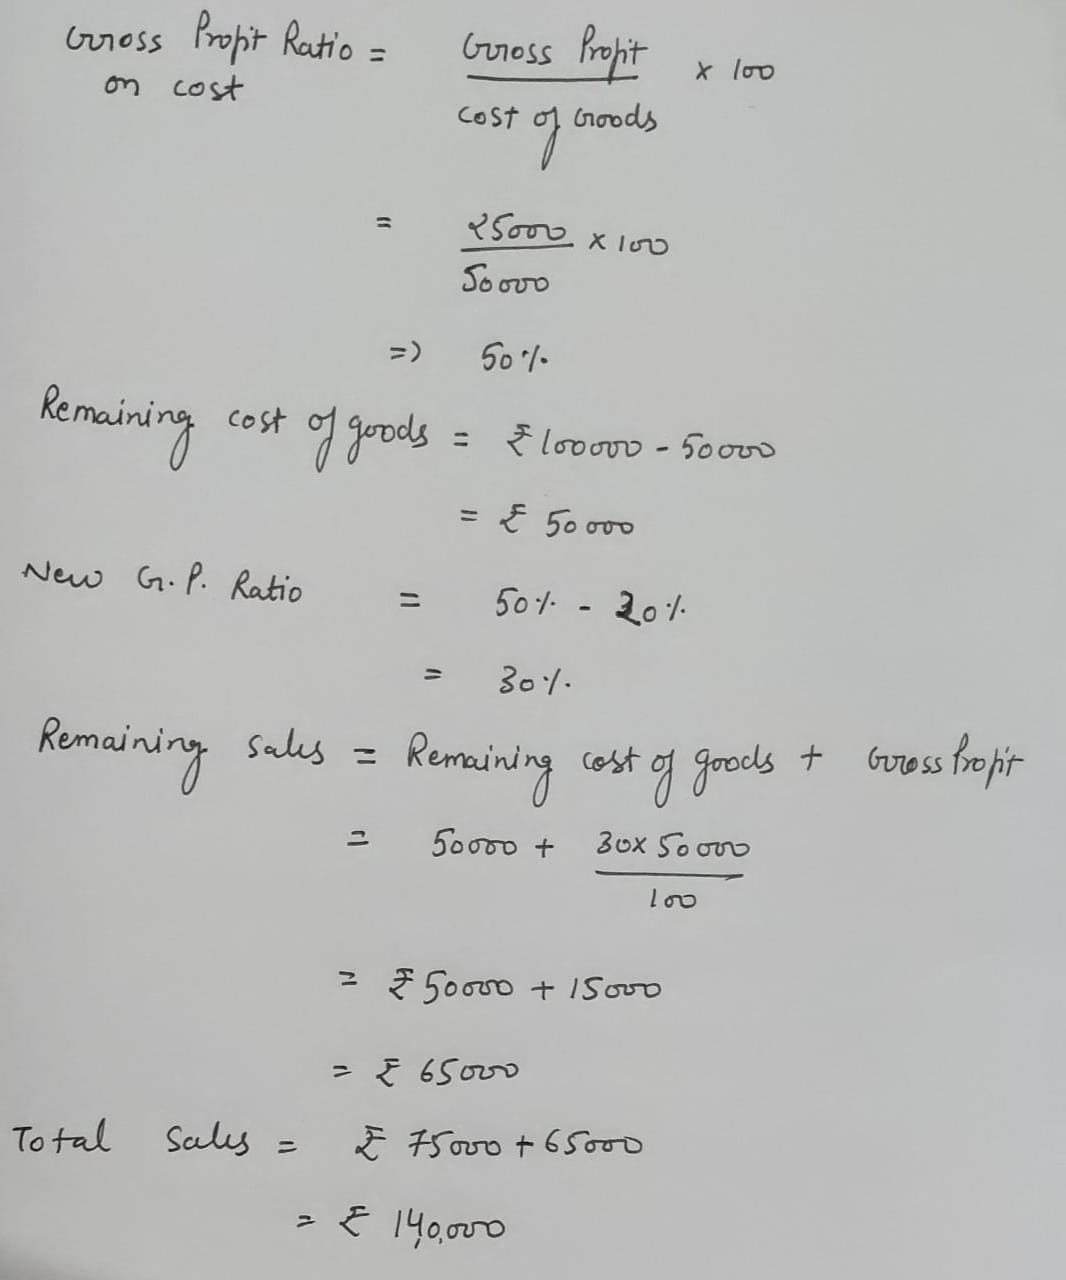 Gross Profit Ratio = Gross Profit x 100
on cost
cost of Goods
= 25000 x 100
50000
=> 50%
Remaining cost of goods = ₹ 100000 - 50000
= ₹ 50000
New G.P. Ratio = 50% - 20%
= 30%.
Remaining sales = Remaining cost of goods + Gross Profit
= 50000 + 30x 50000
100
= ₹ 50000 + 15000
= ₹ 65000
Total Sales = ₹ 75000 + 65000
= ₹ 140,000